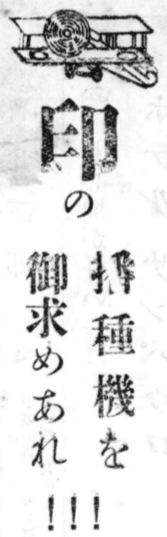 印の
播種機を
御求めあれ!!!